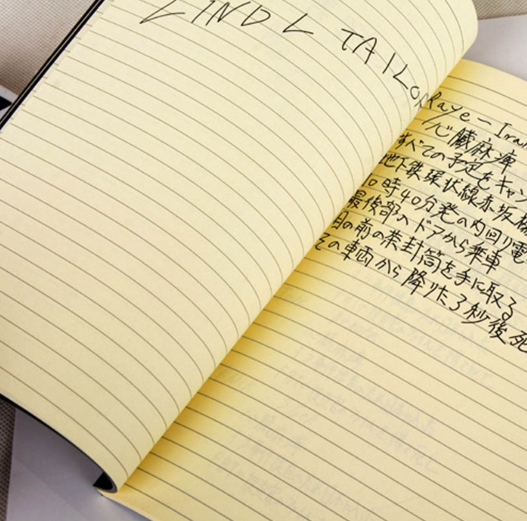 LIND L TAILOR
Raye-
心臓麻痺
すべての予定をキャン
地下鉄環状線赤坂
10時40分発の内回り電
最後部のドアから乗車
目の前の茶封筒を手に取る
その車両から降りた3秒後死